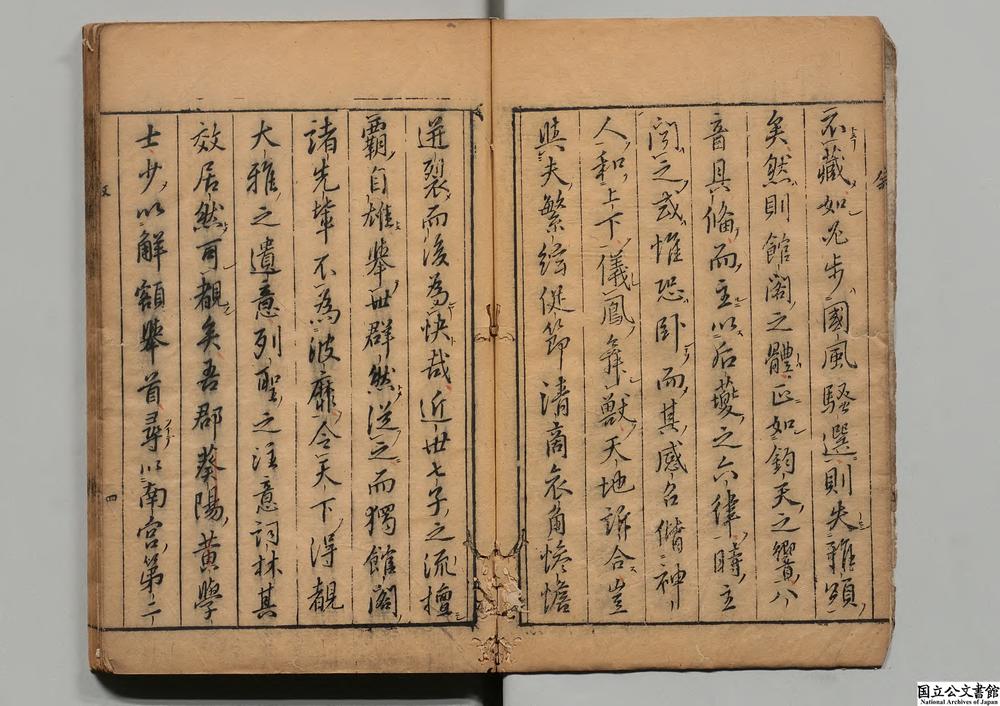 不藏如步國風騷選則失雅頌
矣然則館閣之體正如鈞天之響八
音具俻而主以后夔之六律時主
聞之或惟恐卧而其感名偹神
人和上下儀鳳舞獸天地訢合豈
與夫繁絃促節清商哀角憺
迸裂而後為快哉近世七子之流擅
霸自雄舉世群然從之而獨館閣
諸先輩不為波靡令天下得覩
大雅之遺意列聖之注意詞林其
效居然可覩矣吾郡葵陽黃學
士少以解額舉首尋以南宮第二
四
国立公文書館
National Archives of Japan